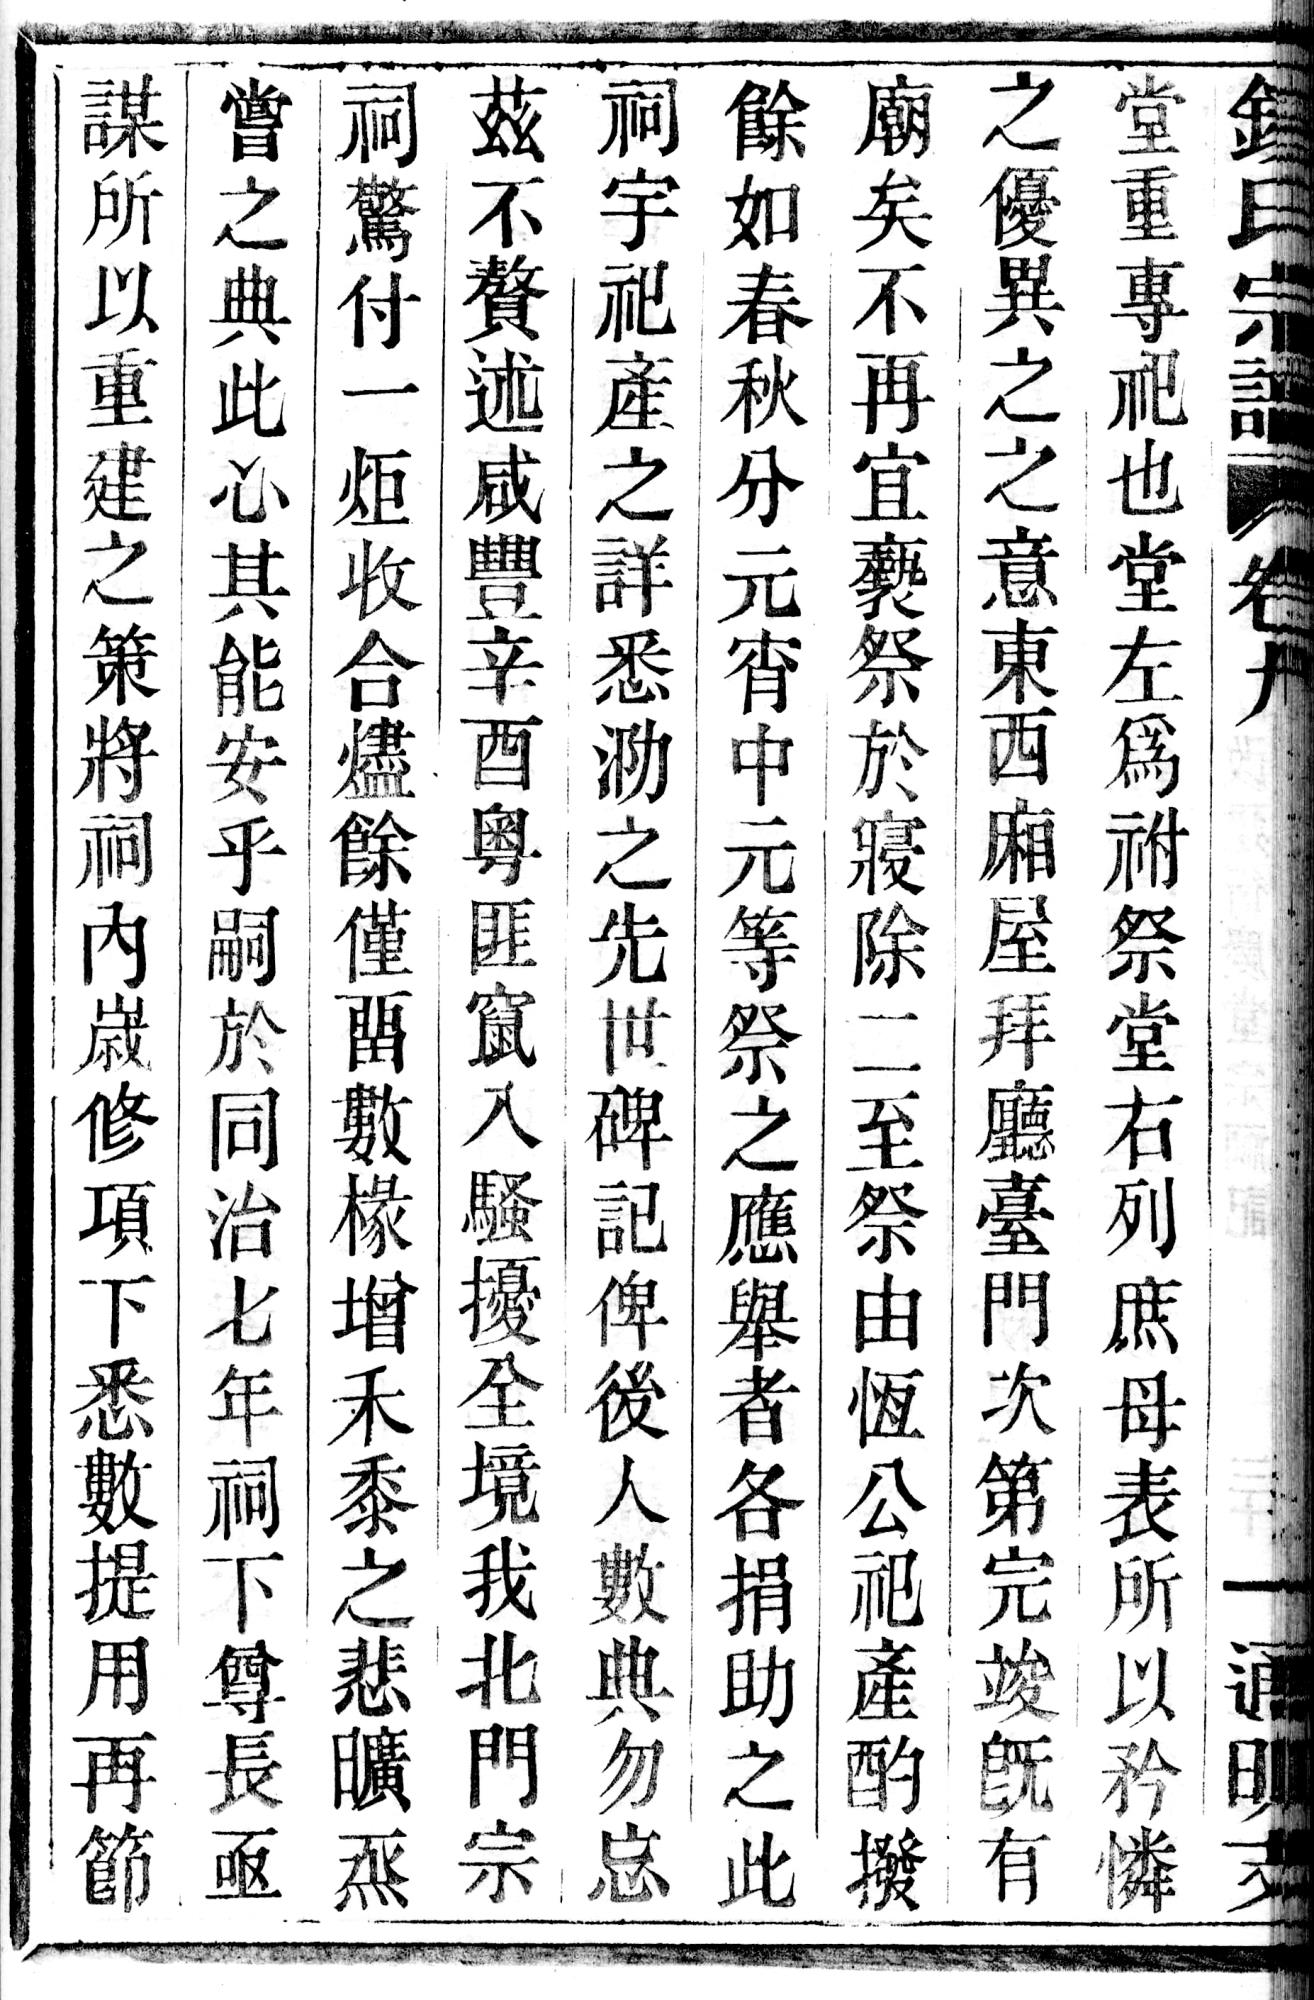 氏宗譜 卷九 通明支
堂重專祀也堂左爲祔祭堂右列庶母表所以矜憐
之優異之之意東西廂屋拜廳臺門次第完竣旣有
廟矣不再宜褻祭於寢除二至祭由恆公祀產酌撥
餘如春秋分元宵中元等祭之應舉者各捐助之此
祠宇祀產之詳悉泐之先世碑記俾後人數典勿忘
茲不贅述咸豐辛酉粤匪竄入騷擾全境我北門宗
祠驚付一炬收合燼餘僅畱數椽增禾黍之悲曠烝
嘗之典此心其能安乎嗣於同治七年祠下尊長亟
謀所以重建之策將祠內歲修項下悉數提用再節